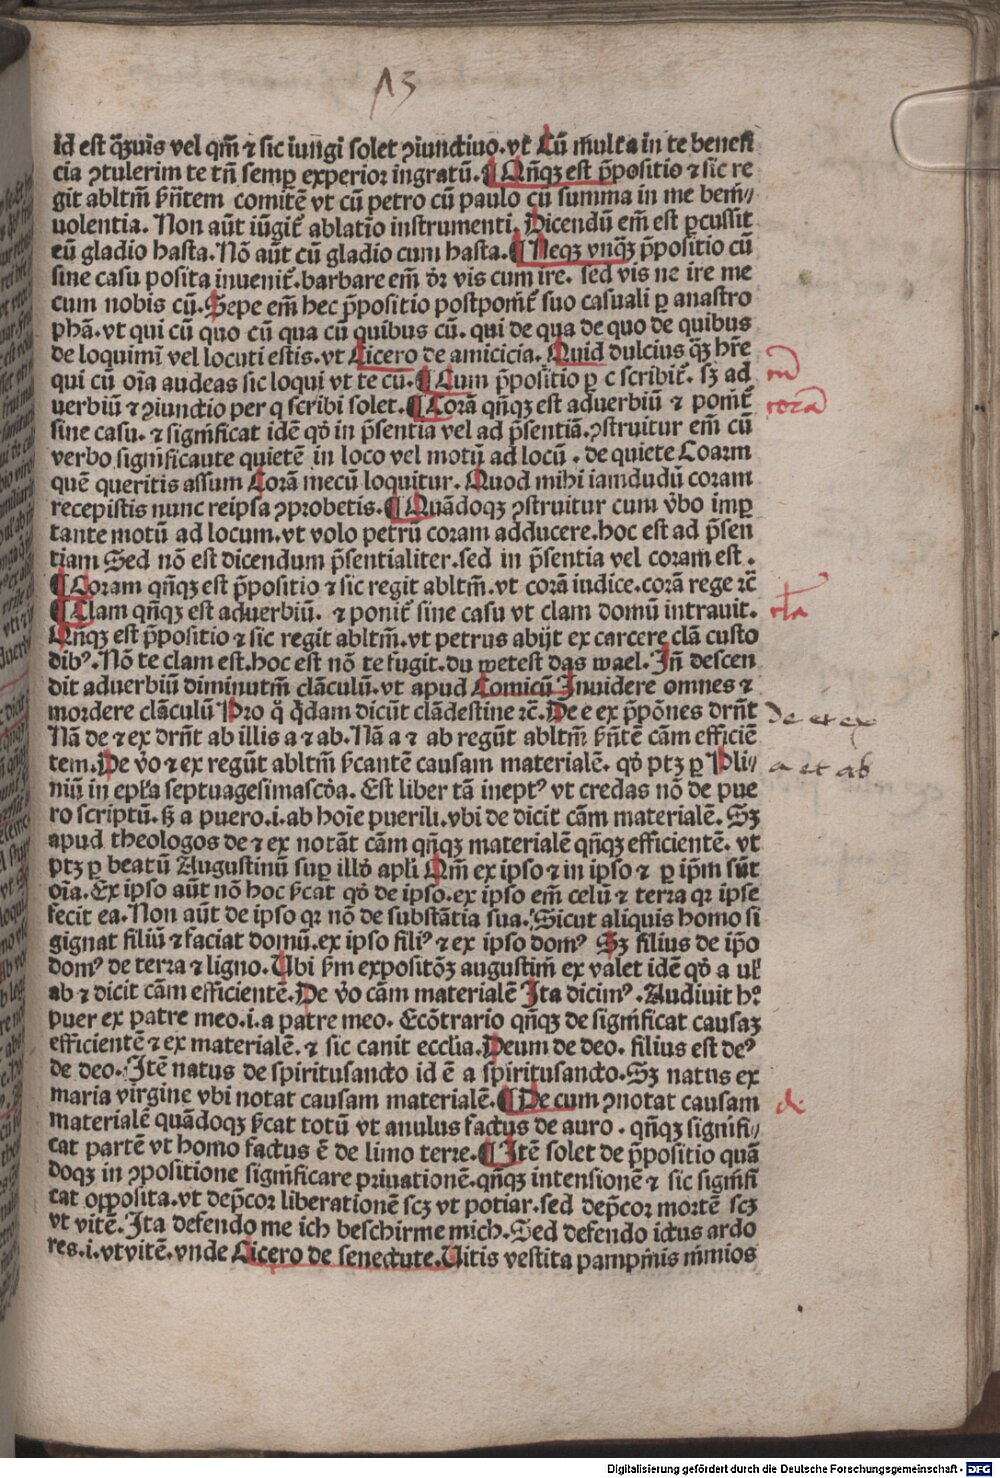 13
id est q̄ꝫuis vel qm̄ ⁊ sic iungi solet ꝯiunctiuo. vt Cū multa in te benefi
cia ꝯtulerim te tn̄ semꝑ experior ingratū. ¶ Qn̄qꝫ est p̄positio ⁊ sic re
git abltm̄ ẜn̄tem comitē vt cū petro cū paulo cū summa in me beni⸗
uolentia. Non aūt iūgit᷑ ablatio instrumenti. Dicendū em̄ est ꝑcussit
eū gladio hasta. Nō aūt cū gladio cum hasta. ¶ Neqꝫ vnqꝫ̄ p̄positio cū
sine casu posita inuenit᷑. barbare em̄ dr̄ vis cum ire. sed vis ne ire me
cum nobis cū. Sepe em̄ hec p̄positio postponit᷑ suo casuali ꝑ anastro
phā. vt qui cū quo cū qua cū quibus cū. qui de qua de quo de quibus
de loquimī vel locuti estis. vt Cicero de amicicia. Quid dulcius q̄ꝫ hr̄e
qui cū oīa audeas sic loqui vt te cū. ¶ Cum p̄positio ꝑ c scribit᷑. sꝫ ad
uerbiū ⁊ ꝯiunctio per q scribi solet. ¶ Corā qn̄qꝫ est aduerbiū ⁊ ponit᷑
sine casu. ⁊ significat idē qd̓ in p̄sentia vel ad p̄sentiā. ꝯstruitur em̄ cū
verbo significaute quietē in loco vel motū ad locū. de quiete Coarm
quē queritis assum Corā mecū loquitur. Quod mihi iamdudū coram
recepistis nunc reipsa ꝯprobetis. ¶ Quādoqꝫ ꝯstruitur cum v̓bo imꝑ
tante motū ad locum. vt volo petrū coram adducere. hoc est ad p̄sen
tiam Sed nō est dicendum p̄sentialiter. sed in p̄sentia vel coram est.
¶ Coram qn̄qꝫ est p̄positio ⁊ sic regit abltm̄. vt corā iudice. corā rege ⁊c̄
¶ Clam qn̄qꝫ est aduerbiū. ⁊ ponit᷑ sine casu vt clam domū intrauit.
Qn̄qꝫ est p̄positio ⁊ sic regit abltm̄. vt petrus abijt ex carcere clā custo
dibꝰ. Nō te clam est. hoc est nō te fugit. du wetest das wael. In̄ descen
dit aduerbiū diminutm̄ clāculū. vt apud Comicū Inuidere omnes ⁊
mordere clāculū Pro q̄ q̄dam dicūt clādestine ⁊c̄. De e ex p̄pōnes drn̄t
Nā de ⁊ ex drn̄t ab illis a ⁊ ab. Nā a ⁊ ab regūt abltm̄ ẜn̄tē cām efficiē
tem. De v̓o ⁊ ex regūt abltm̄ ẜcantē causam materialē. qd̓ ptꝫ ꝑ Pli⸗
niū in epl̓a septuagesimascd̓a. Est liber tā ineptꝰ vt credas nō de pue
ro scriptū. ẜꝫ a puero .i. ab hoīe puerili. vbi de dicit cām materialē. Sꝫ
apud theologos de ⁊ ex notāt cām qn̄qꝫ materialē qn̄qꝫ efficientē. vt
ptꝫ ꝑ beatū Augustinū suꝑ illd̓ apl̓i Qm̄ ex ipso ⁊ in ipso ⁊ ꝑ ip̄m sūt
oīa. Ex ipso aūt nō hoc ẜcat qd̓ de ipso. ex ipso em̄ celū ⁊ terra qꝛ ipse
fecit ea. Non aūt de ipso qꝛ nō de substātia sua. Sicut aliquis homo si
gignat filiū ⁊ faciat domū. ex ipso filiꝰ ⁊ ex ipso domꝰ Sꝫ filius de ip̄o
domꝰ de terra ⁊ ligno. Ubi ẜm expositōꝫ augustini ex valet idē qd̓ a ul̓
ab ⁊ dicit cām efficientē. De v̓o cām materialē Ita dicimꝰ. Audiuit hꝰ
puer ex patre meo .i. a patre meo. Ecōtrario qn̄qꝫ de significat causaꝫ
efficientē ⁊ ex materialē. ⁊ sic canit eccl̓ia. Deum de deo. filius est deꝰ
de deo. Itē natus de spiritusancto id ē a spiritusancto. Sꝫ natus ex
maria virgine vbi notat causam materialē. ¶ De cum ꝯnotat causam
materialē quādoqꝫ ẜcat totū vt anulus factus de auro. qn̄qꝫ signifi⸗
cat partē vt homo factus ē de limo terre. ¶ Itē solet de p̄positio quā
doqꝫ in ꝯpositione significare priuationē. qn̄qꝫ intensionē ⁊ sic signifi
cat opposita. vt dep̄cor liberationē scꝫ vt potiar. sed dep̄cor mortē scꝫ
vt vitē. Ita defendo me ich beschirme mich. Sed defendo ictus ardo
res .i. vt vitē. vnde Cicero de senectute. Uitis vestita pampinis nimios
corā
clā
de et ex
a et ab
de
Digitalisierung gefördert durch die Deutsche Forschungsgemeinschaft - DFG